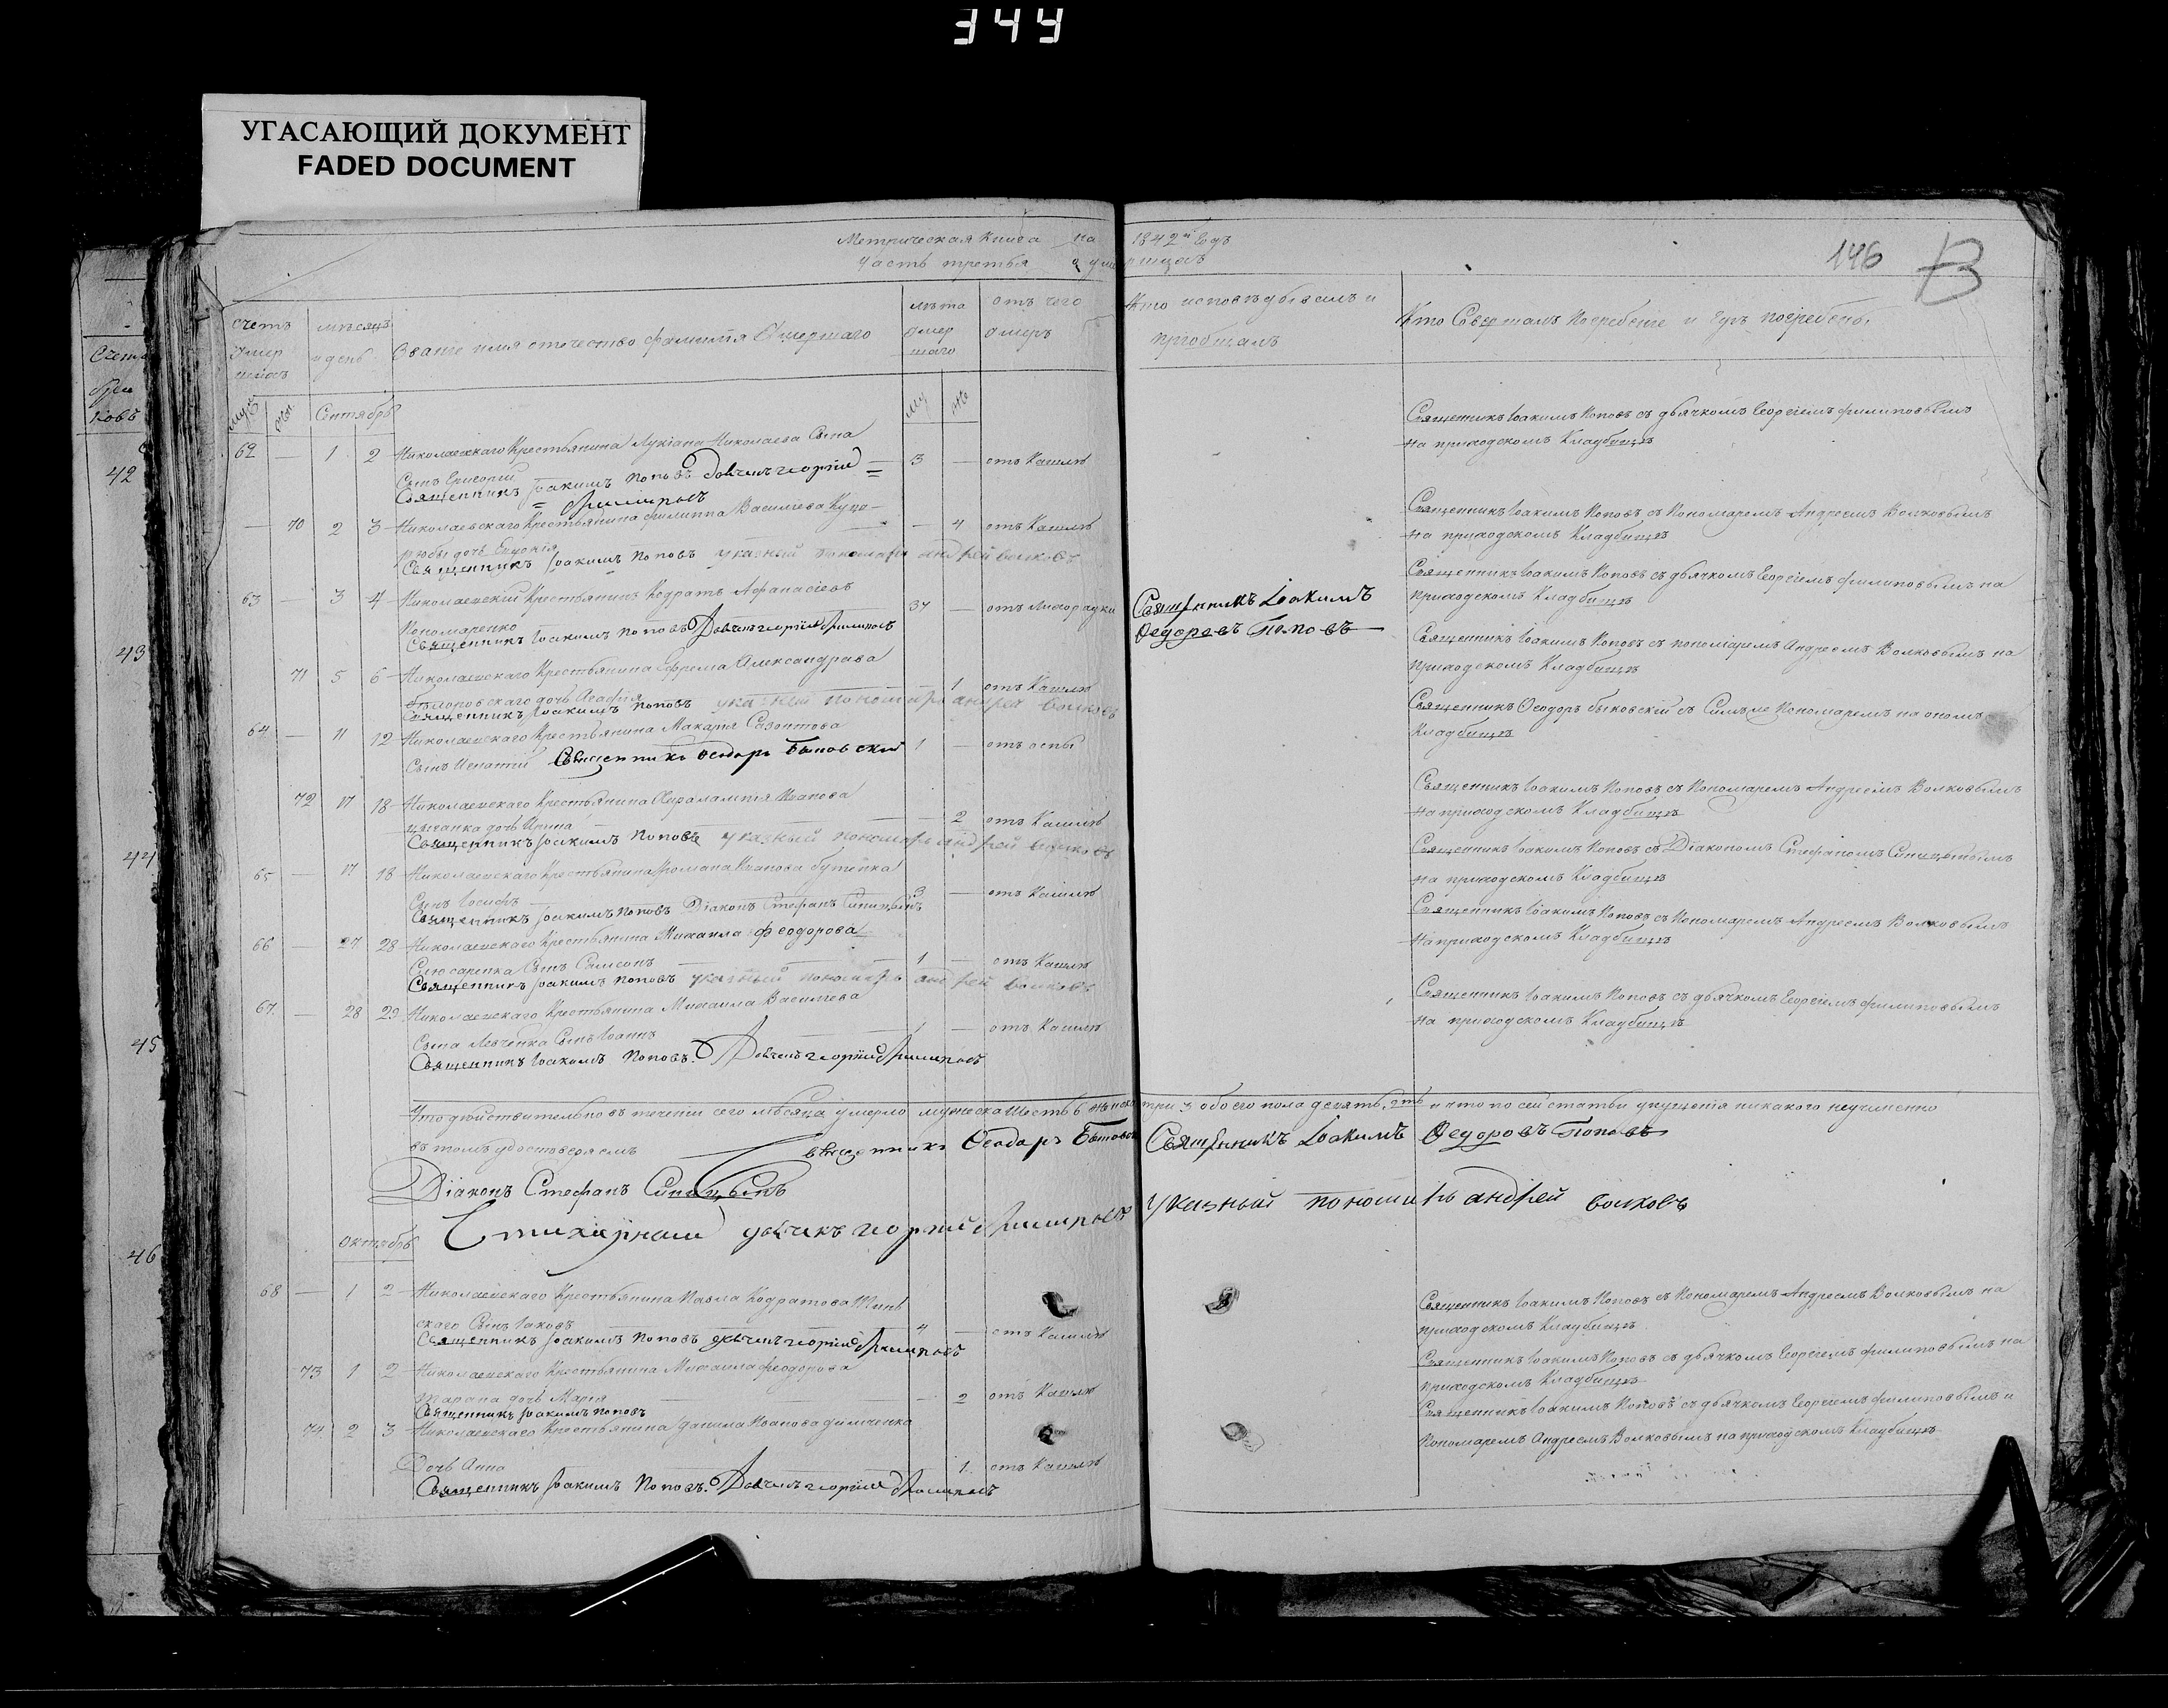 344
УГАСАЮЩИЙ ДОКУМЕНТ
FADED DOCUMENT
Метрическая книга на 1842й Годъ
Часть третья о умершихъ
146
счетъ умер шихъ
мѣсяцъ и день
Званіе имя отечество фамилія Умершаго
лѣта умер шаго
отъ чего умеръ
Кто исповѣдывалъ и пріобщалъ
Кто Совершалъ Погребеніе и гдѣ погребены
муж жен
Сентябрь
му же
62 — 1 2 Николаевскаго Крестьянина Лукіана Николаева Сына
Сынъ Григорій 3 — отъ Кашля
Священникъ Іоакимъ Поповъ Дьячекъ георгій
Филиповъ
Священникъ Іоакимъ Поповъ съ дьячкомъ Георгіемъ филиповымъ
на приходскомъ Кладбищѣ
— 70 2 3 Николаевскаго Крестьянина филиппа Василіева
дочь — 4 отъ Кашля
Священникъ Іоакимъ Поповъ указный пономарь андрей волковъ
Священникъ Іоакимъ Поповъ съ Пономаремъ Андреемъ Волковымъ
на приходскомъ Кладбищѣ
63 — 3 4 Николаевскій Крестьянинъ Кодратъ Афанасіевъ
Пономаренко 37 — отъ лихорадки
Священникъ Іоакимъ Поповъ Дьячекъ георгій Филиповъ
Священникъ Іоакимъ
Федоровъ Поповъ
Священникъ Іоакимъ Поповъ съ дьячкомъ Георгіемъ филиповымъ на
приходскомъ Кладбищѣ
71 5 6 Николаевскаго Крестьянина Ефрема Александрова
дочь Агафія — 1 отъ Кашля
Священникъ Іоакимъ Поповъ указный пономарь андрей волковъ
Священникъ Іоакимъ Поповъ съ пономаремъ Андреемъ Волковымъ на
приходскомъ Кладбищѣ
64 — 11 12 Николаевскаго Крестьянина Макарія Созонтова
Сынъ Игнатій 1 — отъ оспы
Священникъ Феодоръ Быковскій
Священникъ Феодоръ быковскій съ Симъ же Пономаремъ на ономъ
Кладбищѣ
72 17 18 Николаевскаго Крестьянина Харалампія Иванова
дочь Ирина — 2 отъ Кашля
Священникъ Іоакимъ Поповъ указный пономарь андрей волковъ
Священникъ Іоакимъ Поповъ съ Пономаремъ Андреемъ Волковымъ
на приходскомъ Кладбищѣ
65 — 17 18 Николаевскаго Крестьянина Романа Иванова бутенка
Сынъ Іосифъ 3 — отъ Кашля
Священникъ Іоакимъ Поповъ Діаконъ Стефанъ Синицынъ
Священникъ Іоакимъ Поповъ съ Діакономъ Стефаномъ Синицынымъ
на приходскомъ Кладбищѣ
66 — 27 28 Николаевскаго Крестьянина Михаила Феодорова
Слюсаренка Сынъ Самсонъ 1 — отъ Кашля
Священникъ Іоакимъ Поповъ указный пономарь андрей волковъ
Священникъ Іоакимъ Поповъ съ Пономаремъ Андреемъ Волковымъ
на приходскомъ Кладбищѣ
67 — 28 29 Николаевскаго Крестьянина Михаила Василіева
Сына Левченка Сынъ Іоаннъ 1 — отъ Кашля
Священникъ Іоакимъ Поповъ. Дьячекъ георгій Филиповъ
Священникъ Іоакимъ Поповъ съ дьячкомъ Георгіемъ филиповымъ
на приходскомъ Кладбищѣ
Что дѣйствительно въ теченіи сего мѣсяца умерло мужеска шесть 6 женска три 3 обоего пола девять, и что по сей статьи упущенія никакого неучинено
въ томъ удостовѣряемъ Священникъ Феодоръ Быковскій Священникъ Іоакимъ Федоровъ Поповъ
Діаконъ Стефанъ Синицынъ
Стихарный дьячекъ георгій Филиповъ Указный пономарь андрей волковъ
Октябрь
68 — 1 2 Николаевскаго Крестьянина Павла Кодратова
скаго Сынъ Іаковъ 4 — отъ Кашля
Священникъ Іоакимъ Поповъ дьячекъ георгій Филиповъ
Священникъ Іоакимъ Поповъ съ Пономаремъ Андреемъ Волковымъ на
приходскомъ Кладбищѣ
73 1 2 Николаевскаго Крестьянина Михаила феодорова
Тарана дочь Марія — 2 отъ Кашля
Священникъ Іоакимъ Поповъ
Священникъ Іоакимъ Поповъ съ дьячкомъ Георгіемъ филиповымъ на
приходскомъ Кладбищѣ
74 2 3 Николаевскаго Крестьянина Данила Иванова
Дочь Анна 1. отъ Кашля
Священникъ Іоакимъ Поповъ. Дьячекъ георгій Филиповъ
Священникъ Іоакимъ Поповъ съ дьячкомъ Георгіемъ филиповымъ и
Пономаремъ Андреемъ Волковымъ на приходскомъ Кладбищѣ
42
43
44
45
46